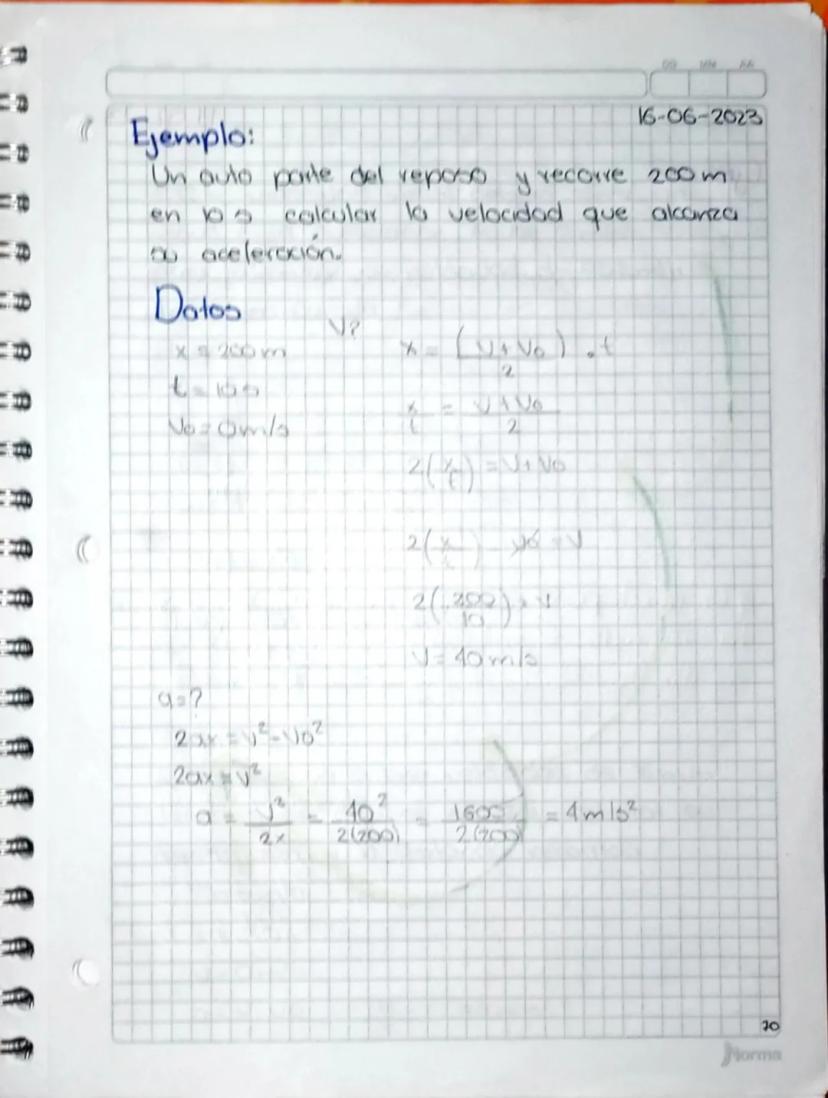 DD MM AA
16-06-2023
Ejemplo:
Un auto parte del reposo y recorre 200 m
en 10 s calcular la velocidad que alcanza
su aceleración.
Datos
V?
x = 200m
t = 10s
Vo = 0m/s
x = (V + Vo / 2) . t
x/t = V + Vo / 2
2(x/t) = V + Vo
2(x/t) - Vo = V
2(200/10) = V
V = 40 m/s
a = ?
2ax = V² - Vo²
2ax = V²
a = V²/2x = 40²/2(200) = 1600/2(200) = 4m/s²
70
Norma